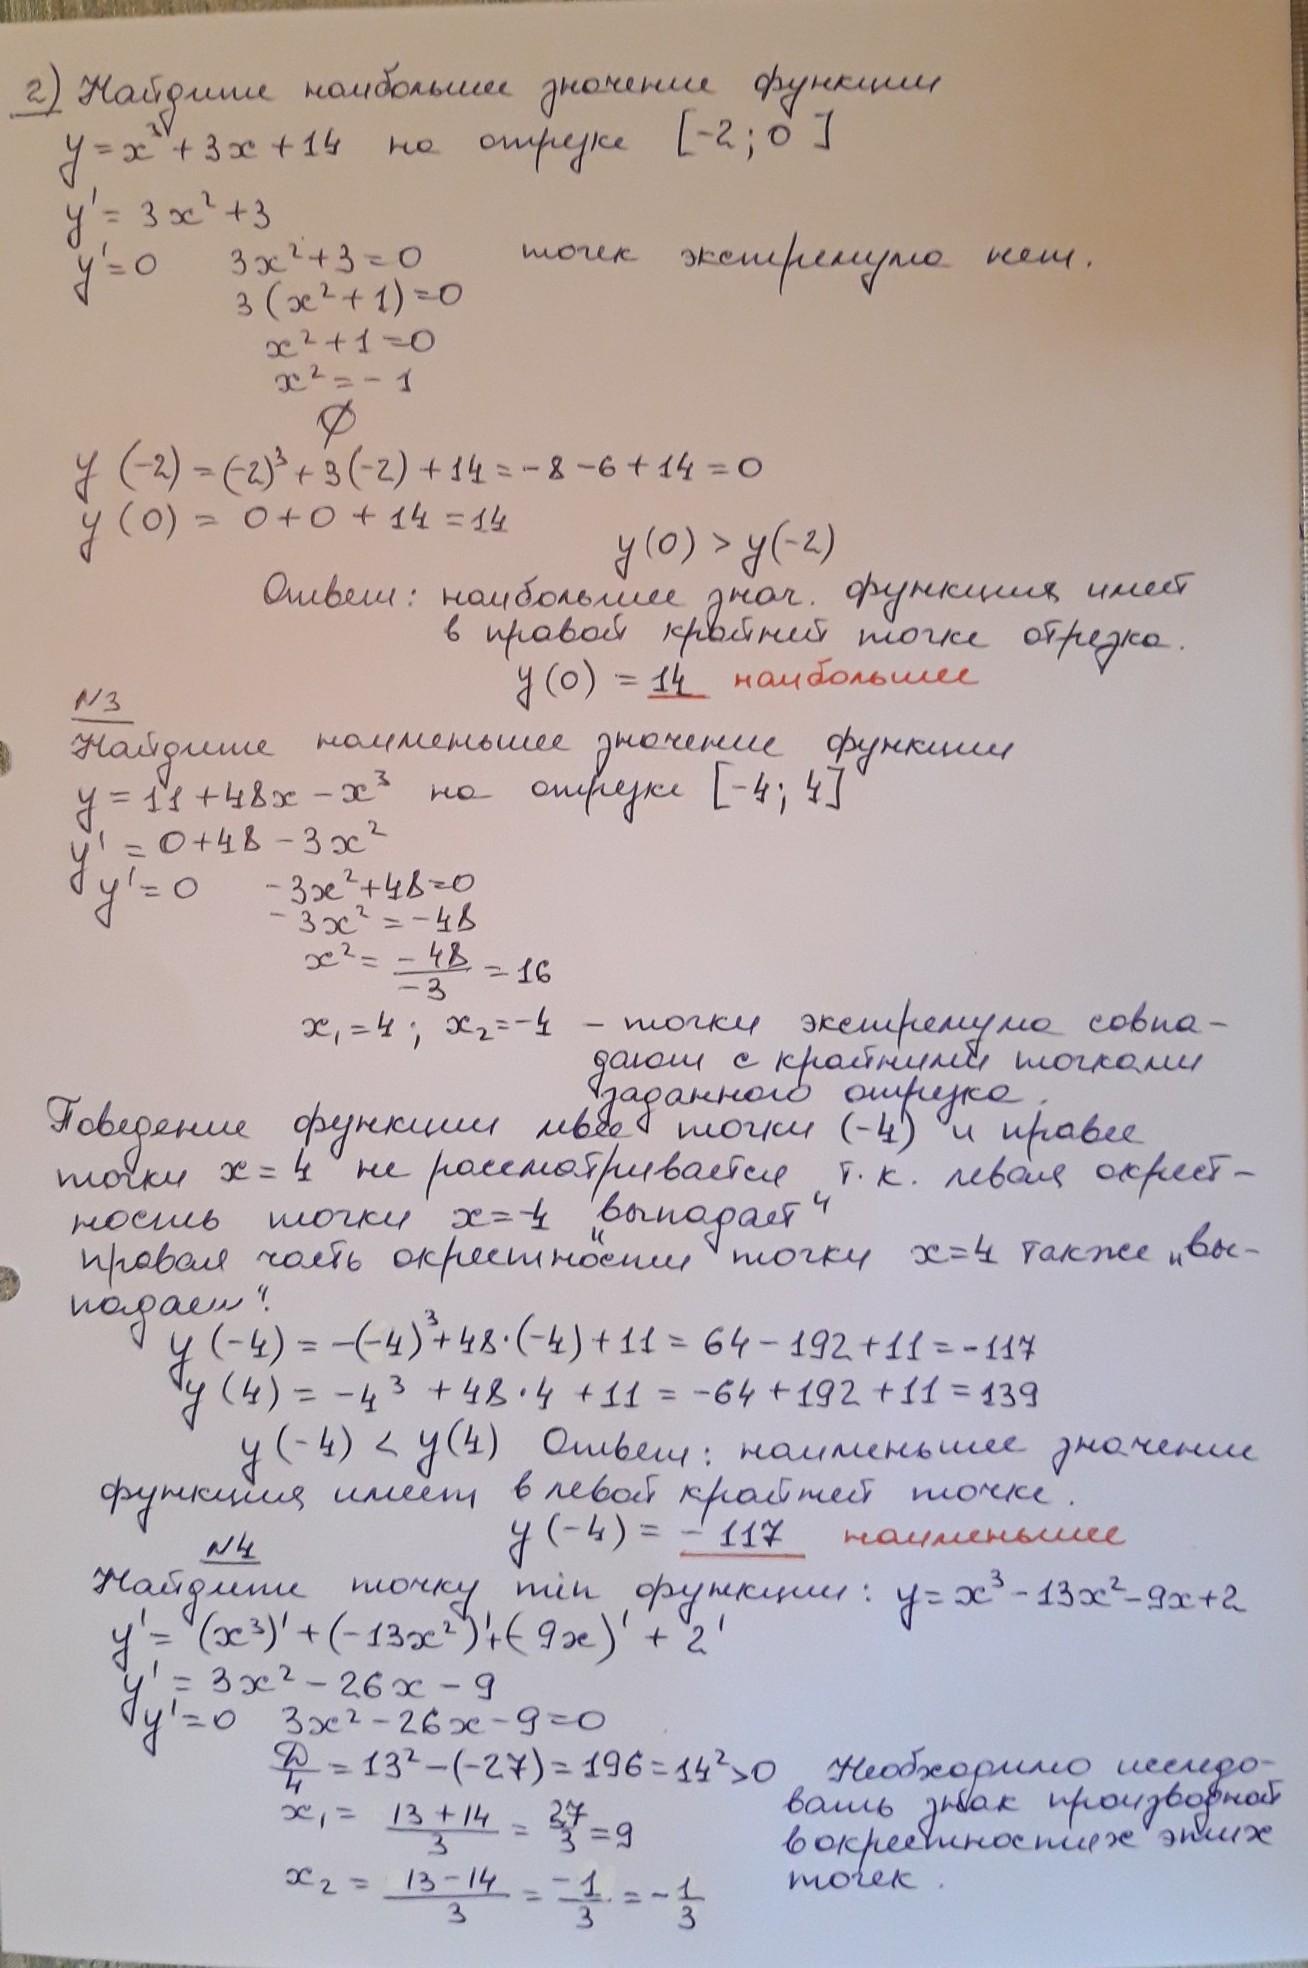 2) Найдите наибольшее значение функции
y = x³ + 3x + 14 на отрезке [-2; 0]
y' = 3x² + 3
y' = 0 3x² + 3 = 0 точек экстремума нет.
3(x² + 1) = 0
x² + 1 = 0
x² = -1
∅
y(-2) = (-2)³ + 3(-2) + 14 = -8 - 6 + 14 = 0
y(0) = 0 + 0 + 14 = 14
y(0) > y(-2)
Ответ: наибольшее знач. функция имеет
в правой крайней точке отрезка.
y(0) = 14 наибольшее
N3
Найдите наименьшее значение функции
y = 11 + 48x - x³ на отрезке [-4; 4]
y' = 0 + 48 - 3x²
y' = 0 -3x² + 48 = 0
-3x² = -48
x² = -48/-3 = 16
x₁ = 4; x₂ = -4 - точки экстремума совпа-
дают с крайними точками
заданного отрезка.
Поведение функции левее точки (-4) и правее
точки x = 4 не рассматривается т.к. левая окрест-
ность точки x = -4 "выпадает"
правая часть окрестности точки x = 4 также „вы-
падает".
y(-4) = -(-4)³ + 48·(-4) + 11 = 64 - 192 + 11 = -117
y(4) = -4³ + 48·4 + 11 = -64 + 192 + 11 = 139
y(-4) < y(4) Ответ: наименьшее значение
функция имеет в левой крайней точке.
y(-4) = -117 наименьшее
N4
Найдите точку min функции: y = x³ - 13x² - 9x + 2
y' = (x³)' + (-13x²)' + (-9x)' + 2'
y' = 3x² - 26x - 9
y' = 0 3x² - 26x - 9 = 0
D/4 = 13² - (-27) = 196 = 14² > 0 Необходимо исследо-
x₁ = 13+14/3 = 27/3 = 9 вать знак производной
в окрестностях этих
x₂ = 13-14/3 = -1/3 = -1/3 точек.